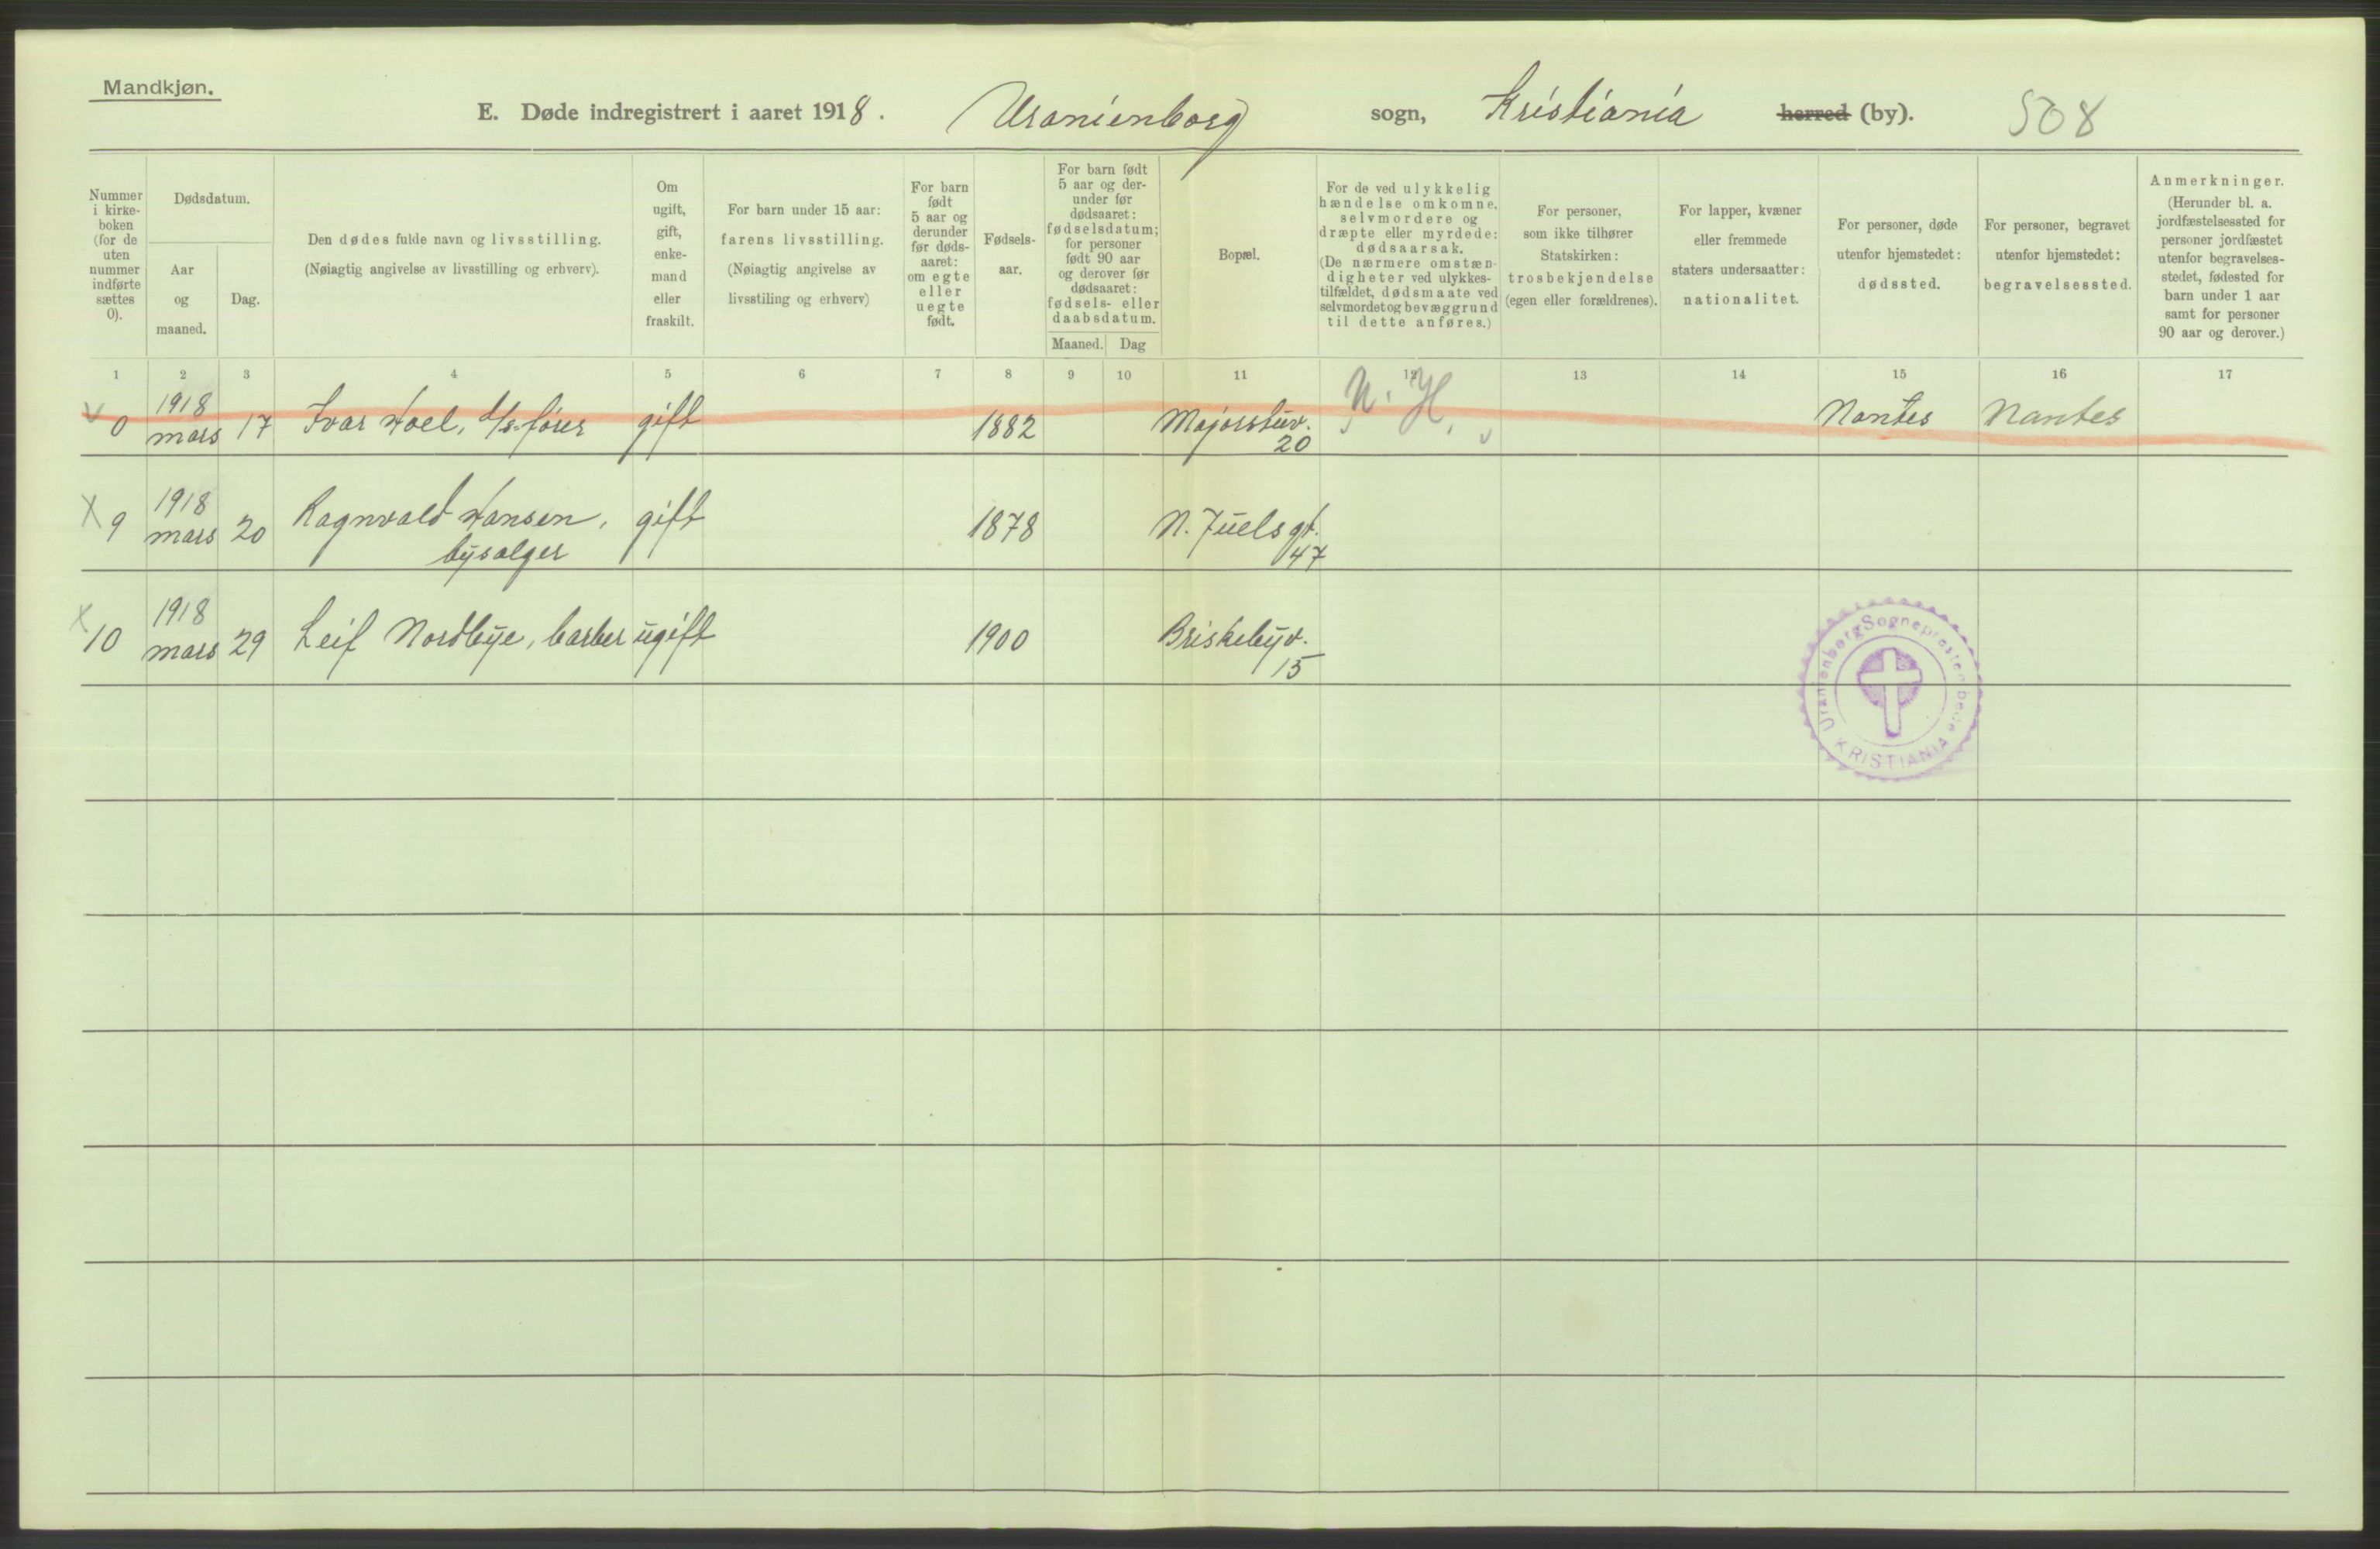 Mandkjøn.
E. Døde indregistrert i aaret 1918. Uranienborg sogn, Kristiania herred (by). 508
Nummer
i kirke-
boken
(for de
uten
nummer
indførte
sættes
0).
Dødsdatum.
Aar
og
maaned.
Dag.
Den dødes fulde navn og livsstilling.
(Nøiagtig angivelse av livsstilling og erhverv).
Om
ugift,
gift,
enke-
mand
eller
fraskilt.
For barn under 15 aar:
farens livsstilling.
(Nøiagtig angivelse av
livsstiling og erhverv)
For barn
født
5 aar og
derunder
før døds-
aaret:
om egte
eller
uegte
født.
Fødsels-
aar.
For barn født
5 aar og der-
under før
dødsaaret:
fødselsdatum;
for personer
født 90 aar
og derover før
dødsaaret:
fødsels- eller
daabsdatum.
Maaned. Dag
Bopæl.
For de ved ulykkelig
hændelse omkomne,
selvmordere og
dræpte eller myrdede:
dødsaarsak.
(De nærmere omstæn-
digheter ved ulykkes-
tilfældet, dødsmaate ved
selvmordet og bevæggrund
til dette anføres.)
For personer,
som ikke tilhører
Statskirken:
trosbekjendelse
(egen eller forældrenes).
For lapper, kvæner
eller fremmede
staters undersaatter:
nationalitet.
For personer, døde
utenfor hjemstedet:
dødssted.
For personer, begravet
utenfor hjemstedet:
begravelsessted.
Anmerkninger.
(Herunder bl. a.
jordfæstelsessted for
personer jordfæstet
utenfor begravelses-
stedet, fødested for
barn under 1 aar
samt for personer
90 aar og derover.)
1 2 3 4 5 6 7 8 9 10 11 12 13 14 15 16 17
0 1918 mars 17 Ivar Hoel, d/s. fører gift 1882 Majorstuv. 20 N. H. Nantes Nantes
x 9 1918 mars 20 Ragnvald Hansen, gift 1878 N. Juels gt. 47
bysælger
x 10 1918 mars 29 Leif Nordbye, barber ugift 1900 Briskebyv. 15
Uranienborg Sogneprestembede
KRISTIANIA